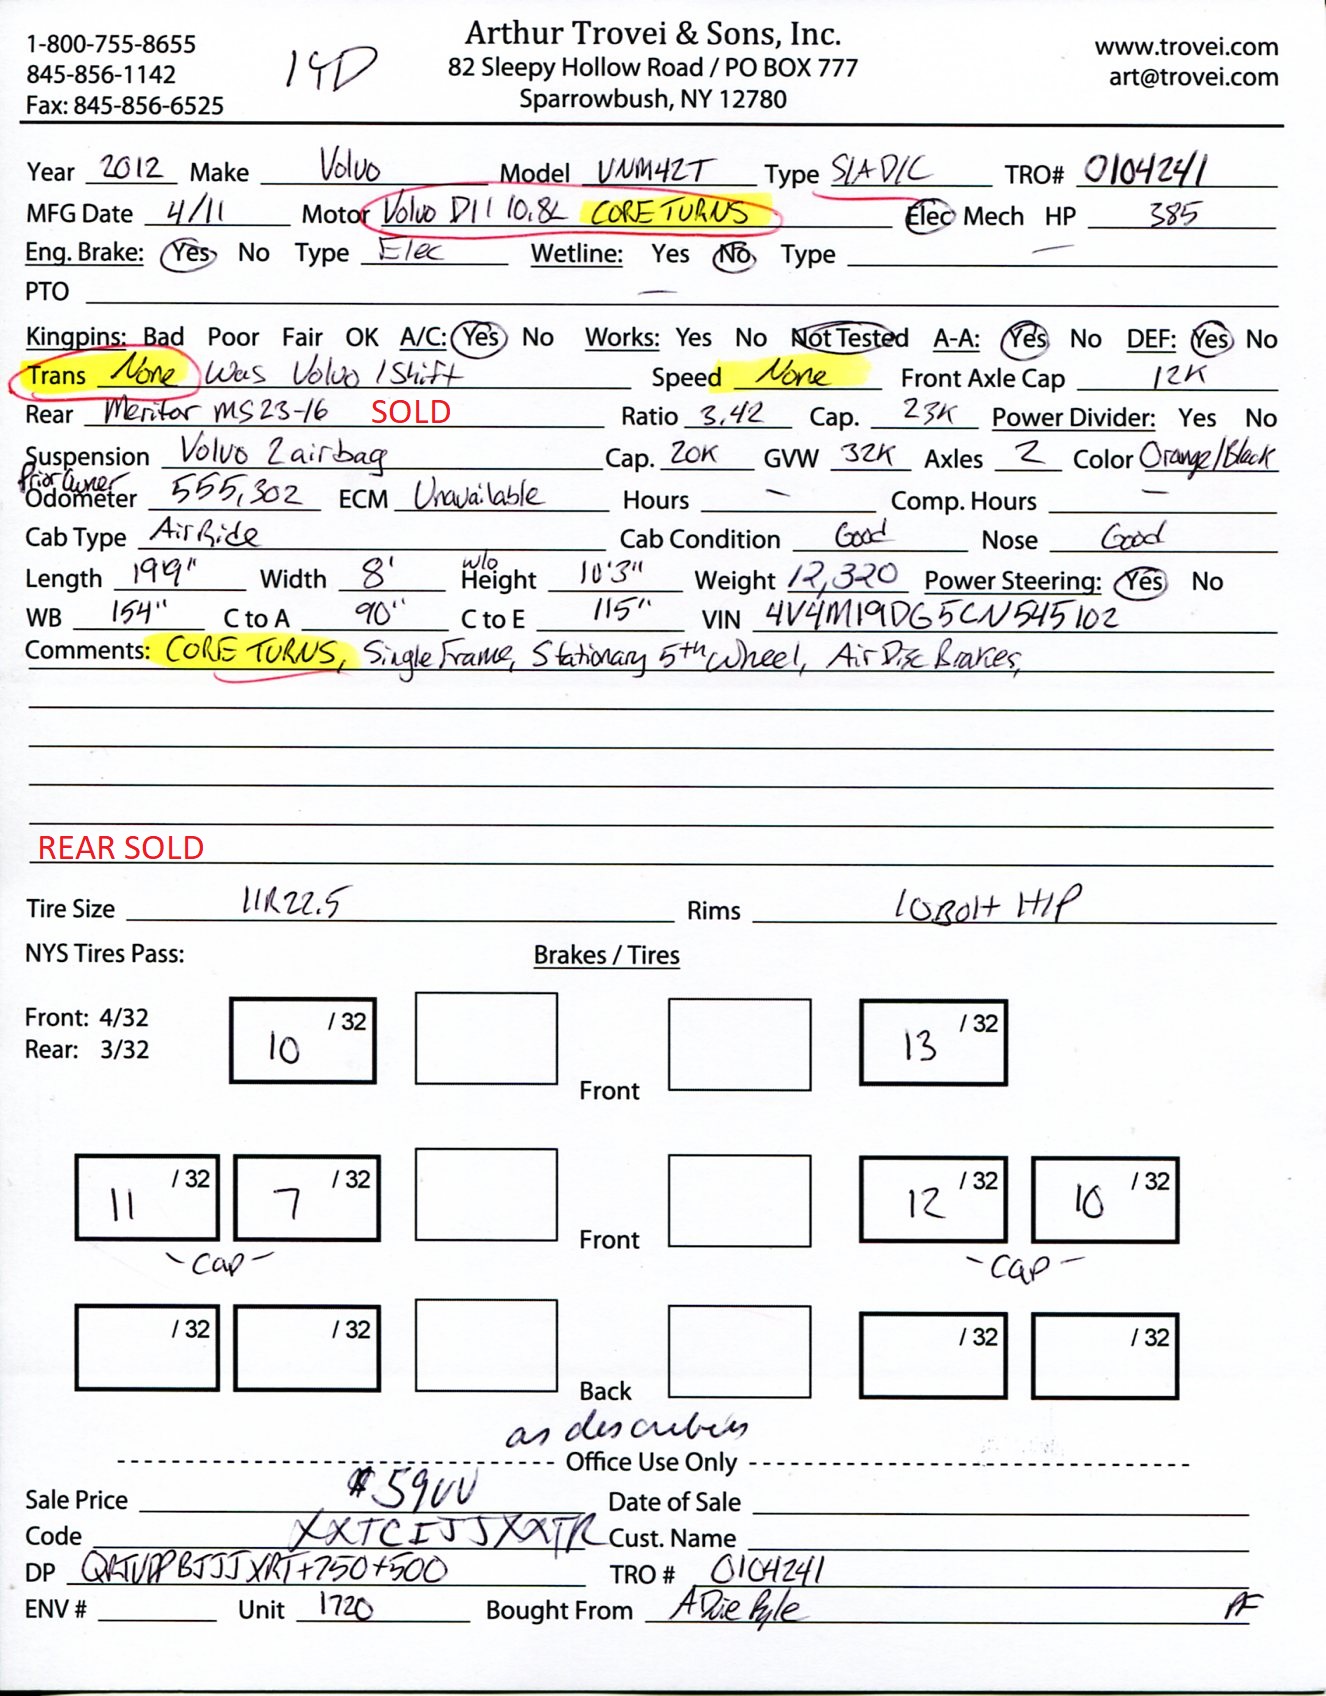 1-800-755-8655
845-856-1142
Fax: 845-856-6525
14D
Arthur Trovei & Sons, Inc.
82 Sleepy Hollow Road / PO BOX 777
Sparrowbush, NY 12780
www.trovei.com
art@trovei.com
Year 2012 Make Volvo Model VNM42T Type S/A D/C TRO# 0104241
MFG Date 4/11 Motor Volvo D11 10.8L CORE TURNS Elec Mech HP 385
Eng. Brake: Yes No Type Elec Wetline: Yes No Type —
PTO —
Kingpins: Bad Poor Fair OK A/C: Yes No Works: Yes No Not Tested A-A: Yes No DEF: Yes No
Trans None Was Volvo I Shift Speed None Front Axle Cap 12K
Rear Meritor MS23-16 SOLD Ratio 3.42 Cap. 23K Power Divider: Yes No
Suspension Volvo 2 airbag Cap. 20K GVW 32K Axles 2 Color Orange/Black
Prior Owner
Odometer 555,302 ECM Unavailable Hours — Comp. Hours —
Cab Type Air Ride Cab Condition Good Nose Good
Length 19'9" Width 8' w/o Height 10'3" Weight 12,320 Power Steering: Yes No
WB 154" C to A 90" C to E 115" VIN 4V4M19DG5CN545102
Comments: CORE TURNS, Single Frame, Stationary 5th Wheel, Air Disc Brakes,
REAR SOLD
Tire Size 11R22.5 Rims 10 Bolt H/P
NYS Tires Pass: Brakes / Tires
Front: 4/32
Rear: 3/32
10 /32 13 /32
Front
11 /32 7 /32 12 /32 10 /32
Front
- Cap - - Cap -
/32 /32 /32 /32
Back
as
Office Use Only
Sale Price $5900 Date of Sale
Code XXTCIJJXXTR Cust. Name
DP +750+500 TRO # 0104241
ENV # Unit 1720 Bought From